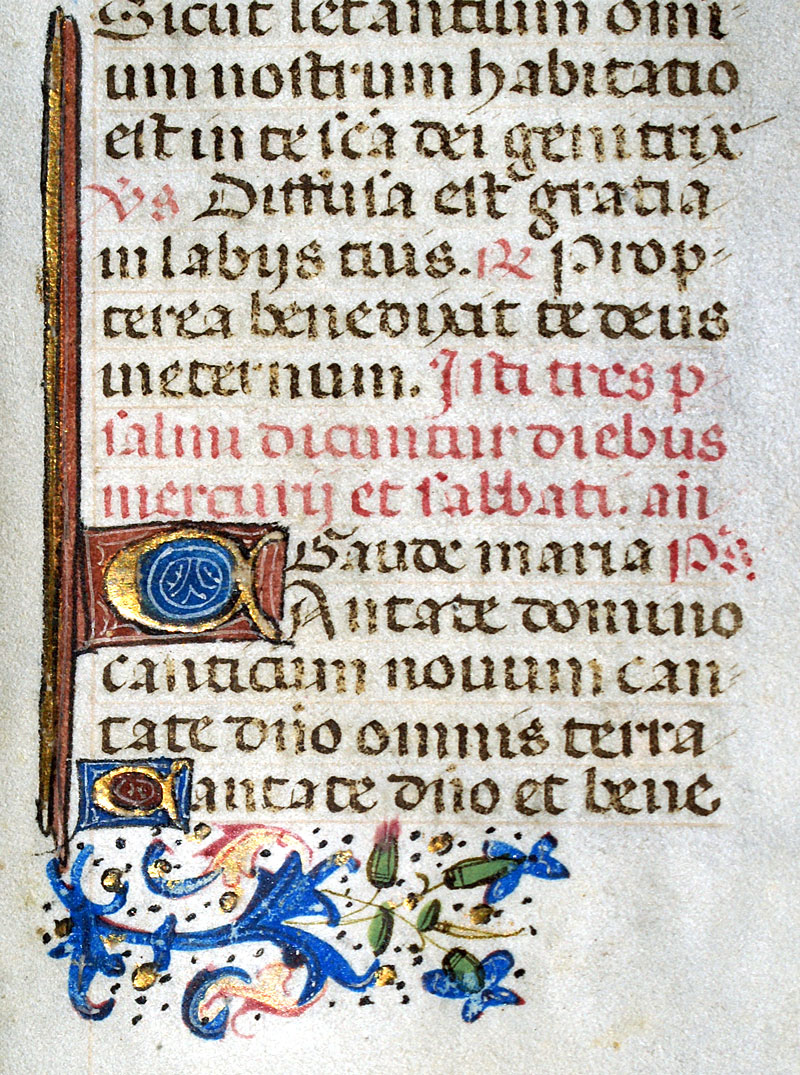 Sicut letantium omi-
um nostrum habitatio
est in te sc̄a dei genitrix
Vs Diffusa est gratia
in labijs tuis. R Prop-
terea benedixit te deus
in eternum. Isti tres p
salmi dicuntur diebus
mercurij et sabbati. an̄
Gaude maria Ps.
CAntate domino
canticum novum can-
tate dn̄o omnis terra
Cantate dn̄o et bene